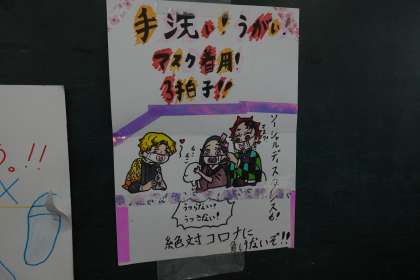 手洗い!うがい!
マスク着用!
3拍子!!
ソーシャルディスタンスも!
うつらない!
うつさない!
絶対コロナに
負けないぞ!!
。!!